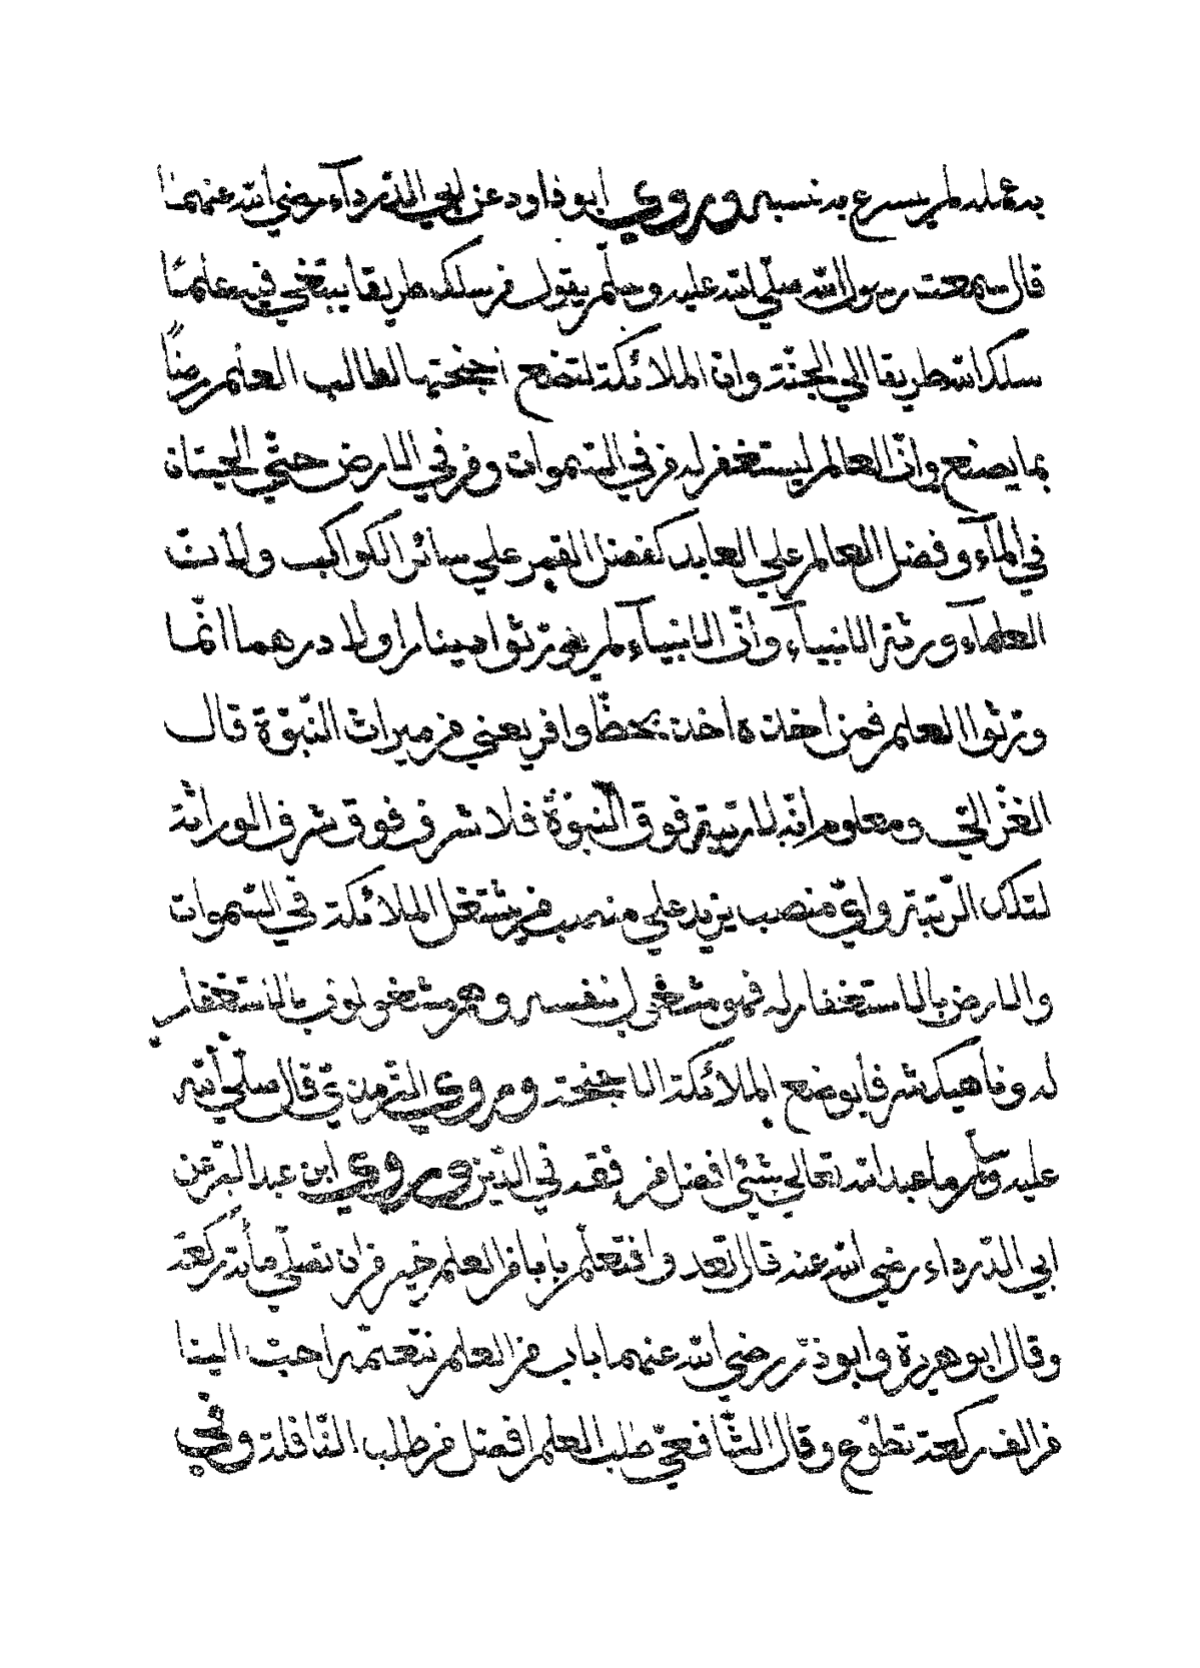 به عمله لم يسرع به نسبه وروي ابو داود عن ابي الدّرداء رضي الله عنهما
قال سمعت رسول الله صلّي الله عليه وسلّم يقول من سلك طريقا يبتغي فيه علمًا
سلك الله طريقا الي الجنّة وان الملائكة لتضع اجنحتها لطالب العلم رضًا
بما يصنع وانّ العالم ليستغفر له من في السّموات ومن في الارض حتّي الحيتان
في المآء وفضل العالم علي العابد كفضل القمر علي سائر الكواكب ولانّ
العلمآء ورثة الانبيآء وانّ الانبيآء لم يورّثوا دينارا ولا درهما انّما
ورّثوا العلم فمن اخذه اخذ بحظّ وافر يعني من ميراث النّبوّة قال
الغزّالي ومعلوم انّه لا رتبة فوق النّبوّة فلا شرف فوق شرف الوراثة
لتلك الرّتبة وايّ منصب يزيد علي منصب من يشتغل الملائكة في السّموات
والارض بالاستغفار له فهو مشغول بنفسه وهم مشغولون بالاستغفار
له وناهيك شرفا بوضع الملائكة الاجنحة وروي التّرمذيّ قال صلّي الله
عليه وسلّم ما عبد الله تعالي بشيء افضل من فقه في الدّين وروي ابن عبد البرّ عن
ابي الدّرداء رضي الله عنه قال تعد وافتعلّم بابا من العلم خير من ان تصلّي مأئة ركعة
وقال ابو هريرة وابو ذرّ رضي الله عنهما باب من العلم نتعلّمه احبّ الينا
من الف ركعة تطوّع وقال الشّافعيّ طلب العلم افضل من طلب النّافلة وفي